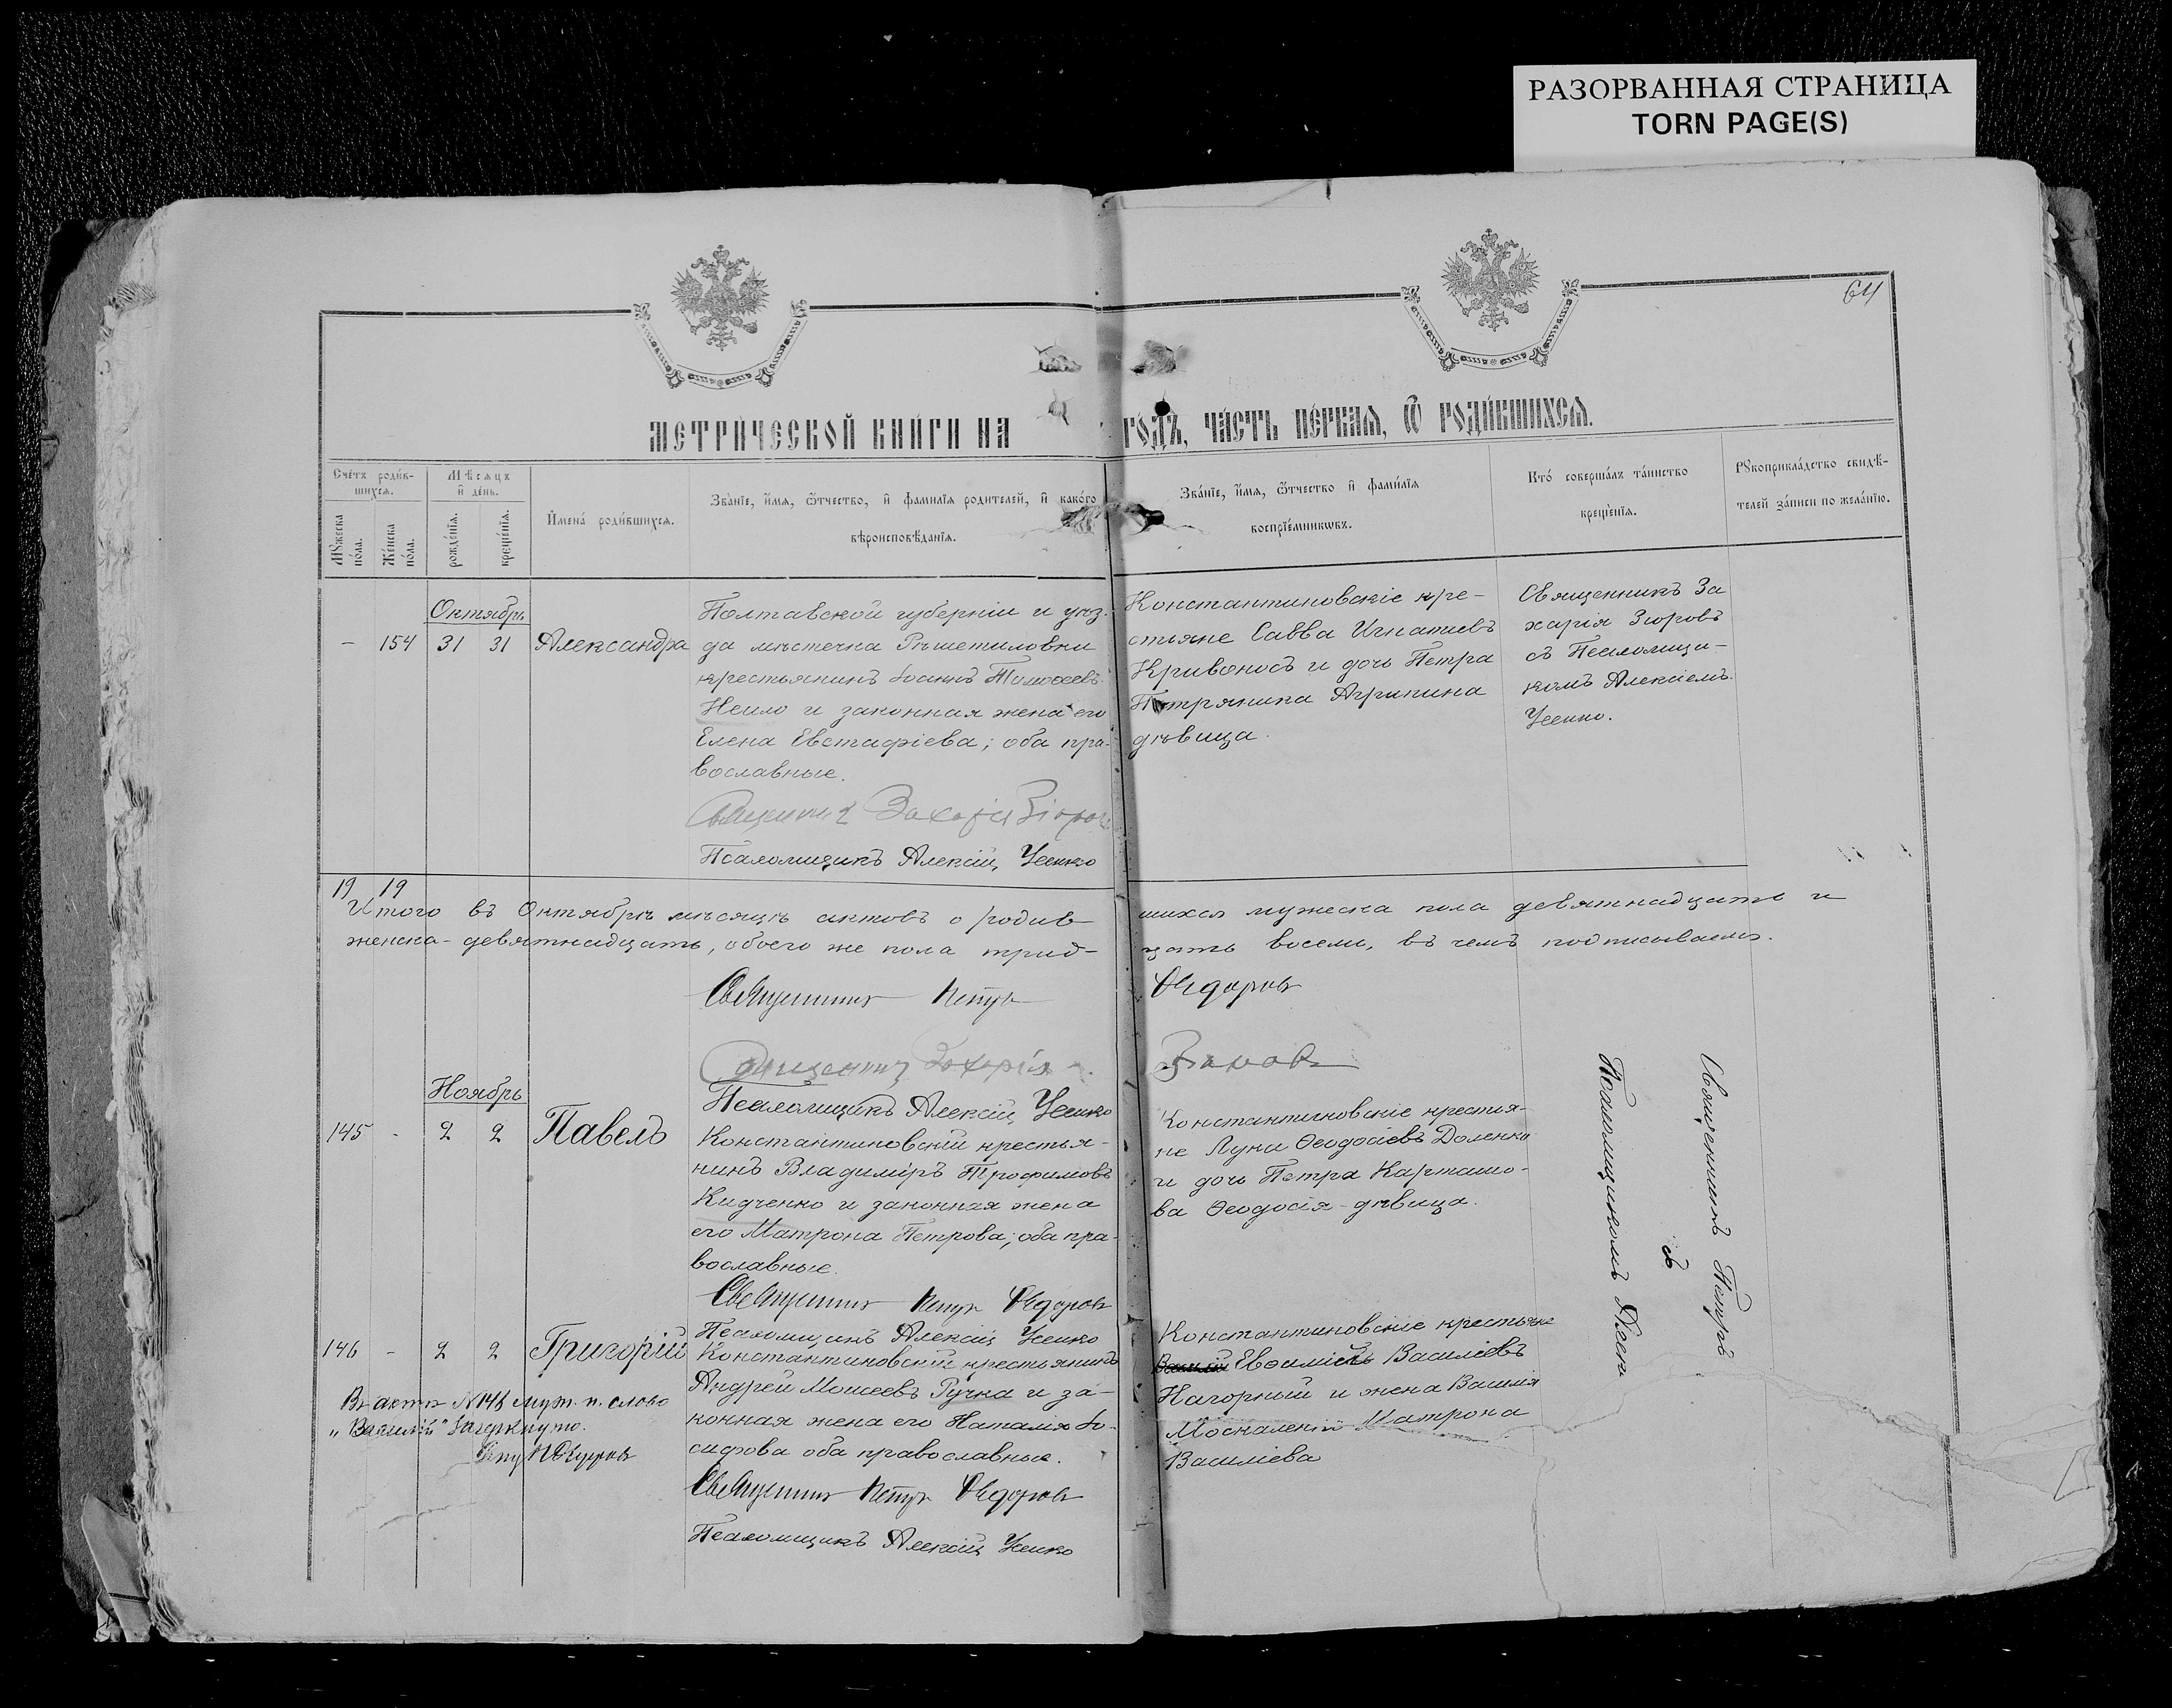 РАЗОРВАННАЯ СТРАНИЦА
TORN PAGE(S)
64
МЕТРИЧЕСКОЙ КНИГИ НА ГОДЪ, ЧАСТЬ ПЕРВАЯ, Ѿ РОДИВШИХСЯ.
Счетъ родив-
шихся.
Мѣсяцъ
и день.
Мужеска
пола.
Женска
пола.
рожденія.
крещенія.
Имена родившихся.
Званіе, имя, ѿтчество, и фамилія родителей, и какого
вѣроисповѣданія.
Званіе, имя, ѿтчество и фамилія
воспріемниковъ.
Кто совершалъ таинство
крещенія.
Рукоприкладство свидѣ-
телей записи по желанію.
Октябрь
- 154 31 31 Александра
Полтавской губерніи и уѣз-
да мѣстечка Рѣшетиловки
крестьянинъ Іоаннъ Тимоѳеевъ
и законная жена его
Елена Евстафіева; оба пра-
вославные.
Священникъ Захарія Зюровъ
Псаломщикъ Алексій Усенко
Константиновскіе кре-
стьяне Савва Игнатіевъ
Кривоносъ и дочь Петра
Петряника Агрипина
дѣвица.
Священникъ За
харія Зюровъ
съ Псаломщи-
комъ Алексіемъ
Усенко.
19 19
Итого въ Октябрѣ мѣсяцѣ актовъ о родив- шихся мужеска пола девятнадцать и
женска - девятнадцать, обоего же пола трид- цать восемь, въ чемъ подписываемъ.
Священникъ Петръ Ѳедоровъ
Священникъ Захарія Зюровъ
Псаломщикъ Алексій Усенко
Ноябрь
145 - 2 2 Павелъ
Константиновскій крестья-
нинъ Владиміръ Трофимовъ
Кидченко и законная жена
его Матрона Петрова; оба пра-
вославные.
Священникъ Петръ Ѳедоровъ
Псаломщикъ Алексій Усенко
Константиновскіе крестья-
не Лука Ѳеодосіевъ Доленко
и дочь Петра Карташо-
ва Ѳеодосія - дѣвица.
146 - 2 2 Григорій
Константиновскій крестьянинъ
Андрей Моисеевъ Ручка и за-
конная жена его Наталія Іо-
сифова оба православные.
Священникъ Петръ Ѳедоровъ
Псаломщикъ Алексій Усенко
Константиновскіе крестьяне
Василій Евѳимій Василіевъ
Нагорный и жена Василія
Москаленко Матрона
Василіева
Священникъ Петръ
съ
Псаломщикомъ Алекс
Въ актѣ № 146 муж. п. слово
„Василій" зачеркнуто.